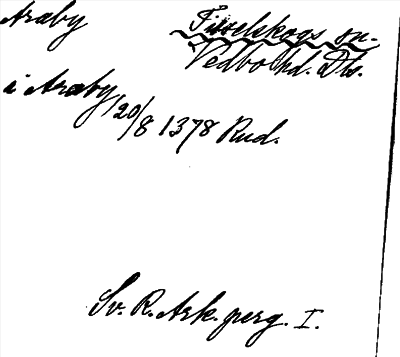 Araby
Tisselskogs sn.
Vedbo hd. Dls.
i Araby 20/8 1378 Rud.
Sv. R. Ark. perg. I.